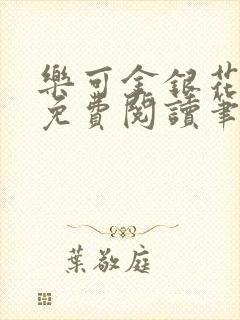 樂可金銀花
免費閱讀筆
葉敬庭